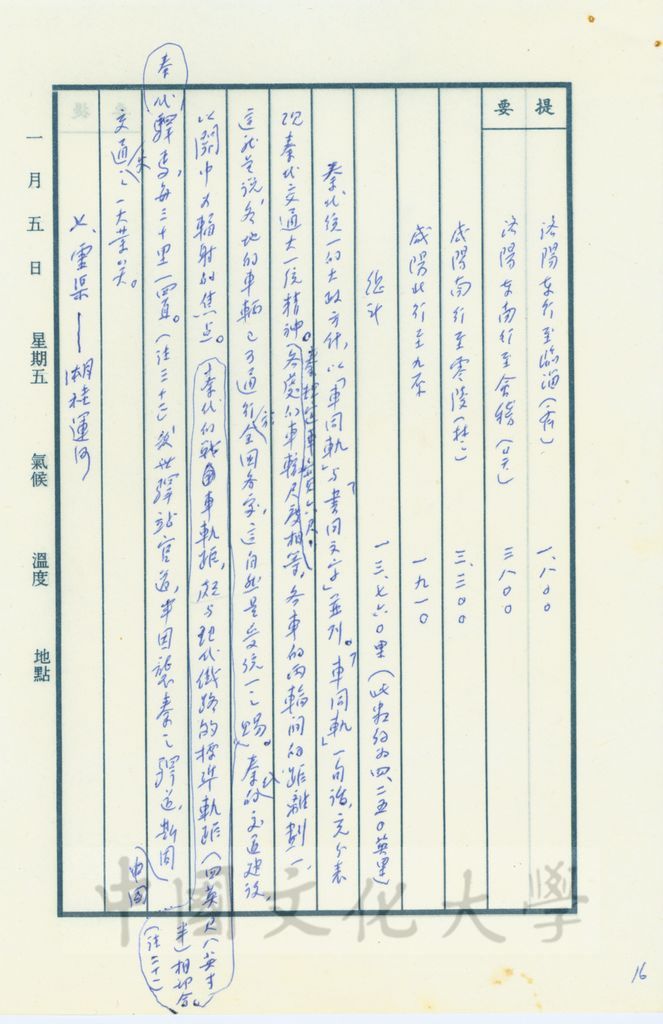 提要
洛陽東行至臨淄（齊） 一、八〇〇
洛陽東南行至會稽 三、八〇〇
咸陽南行至零陵（桂） 三、三〇〇
咸陽北行至九原 一九一〇
總計 一三、七六〇里（此數約為四、二五〇英里）
秦代統一的大政方針，以「車同軌」與「書同文字」並列。「車同軌」一句話，充分表
現秦代交通大一統精神。（各處的車轄尺度相等，各車的兩輪間的距離劃一，
秦探定車寬六尺。
這就是說，各地的車輛已可通行全國各家，這自然是受統一之賜。秦代的交通建設，
以關中為輻射的焦點。秦代的戰車車軌距，頗與現代鐵路的標準軌距（四英尺八英寸
半）相切合。
（註二十一）
秦代驛馬，每三十里一置。（註二十二）後世驛站官道，半因襲秦之驛道，斯固中國
交通之一大業矣。
七、靈渠——湘桂運河
一月五日 星期五 氣候 溫度 地點
中國文化大學
16